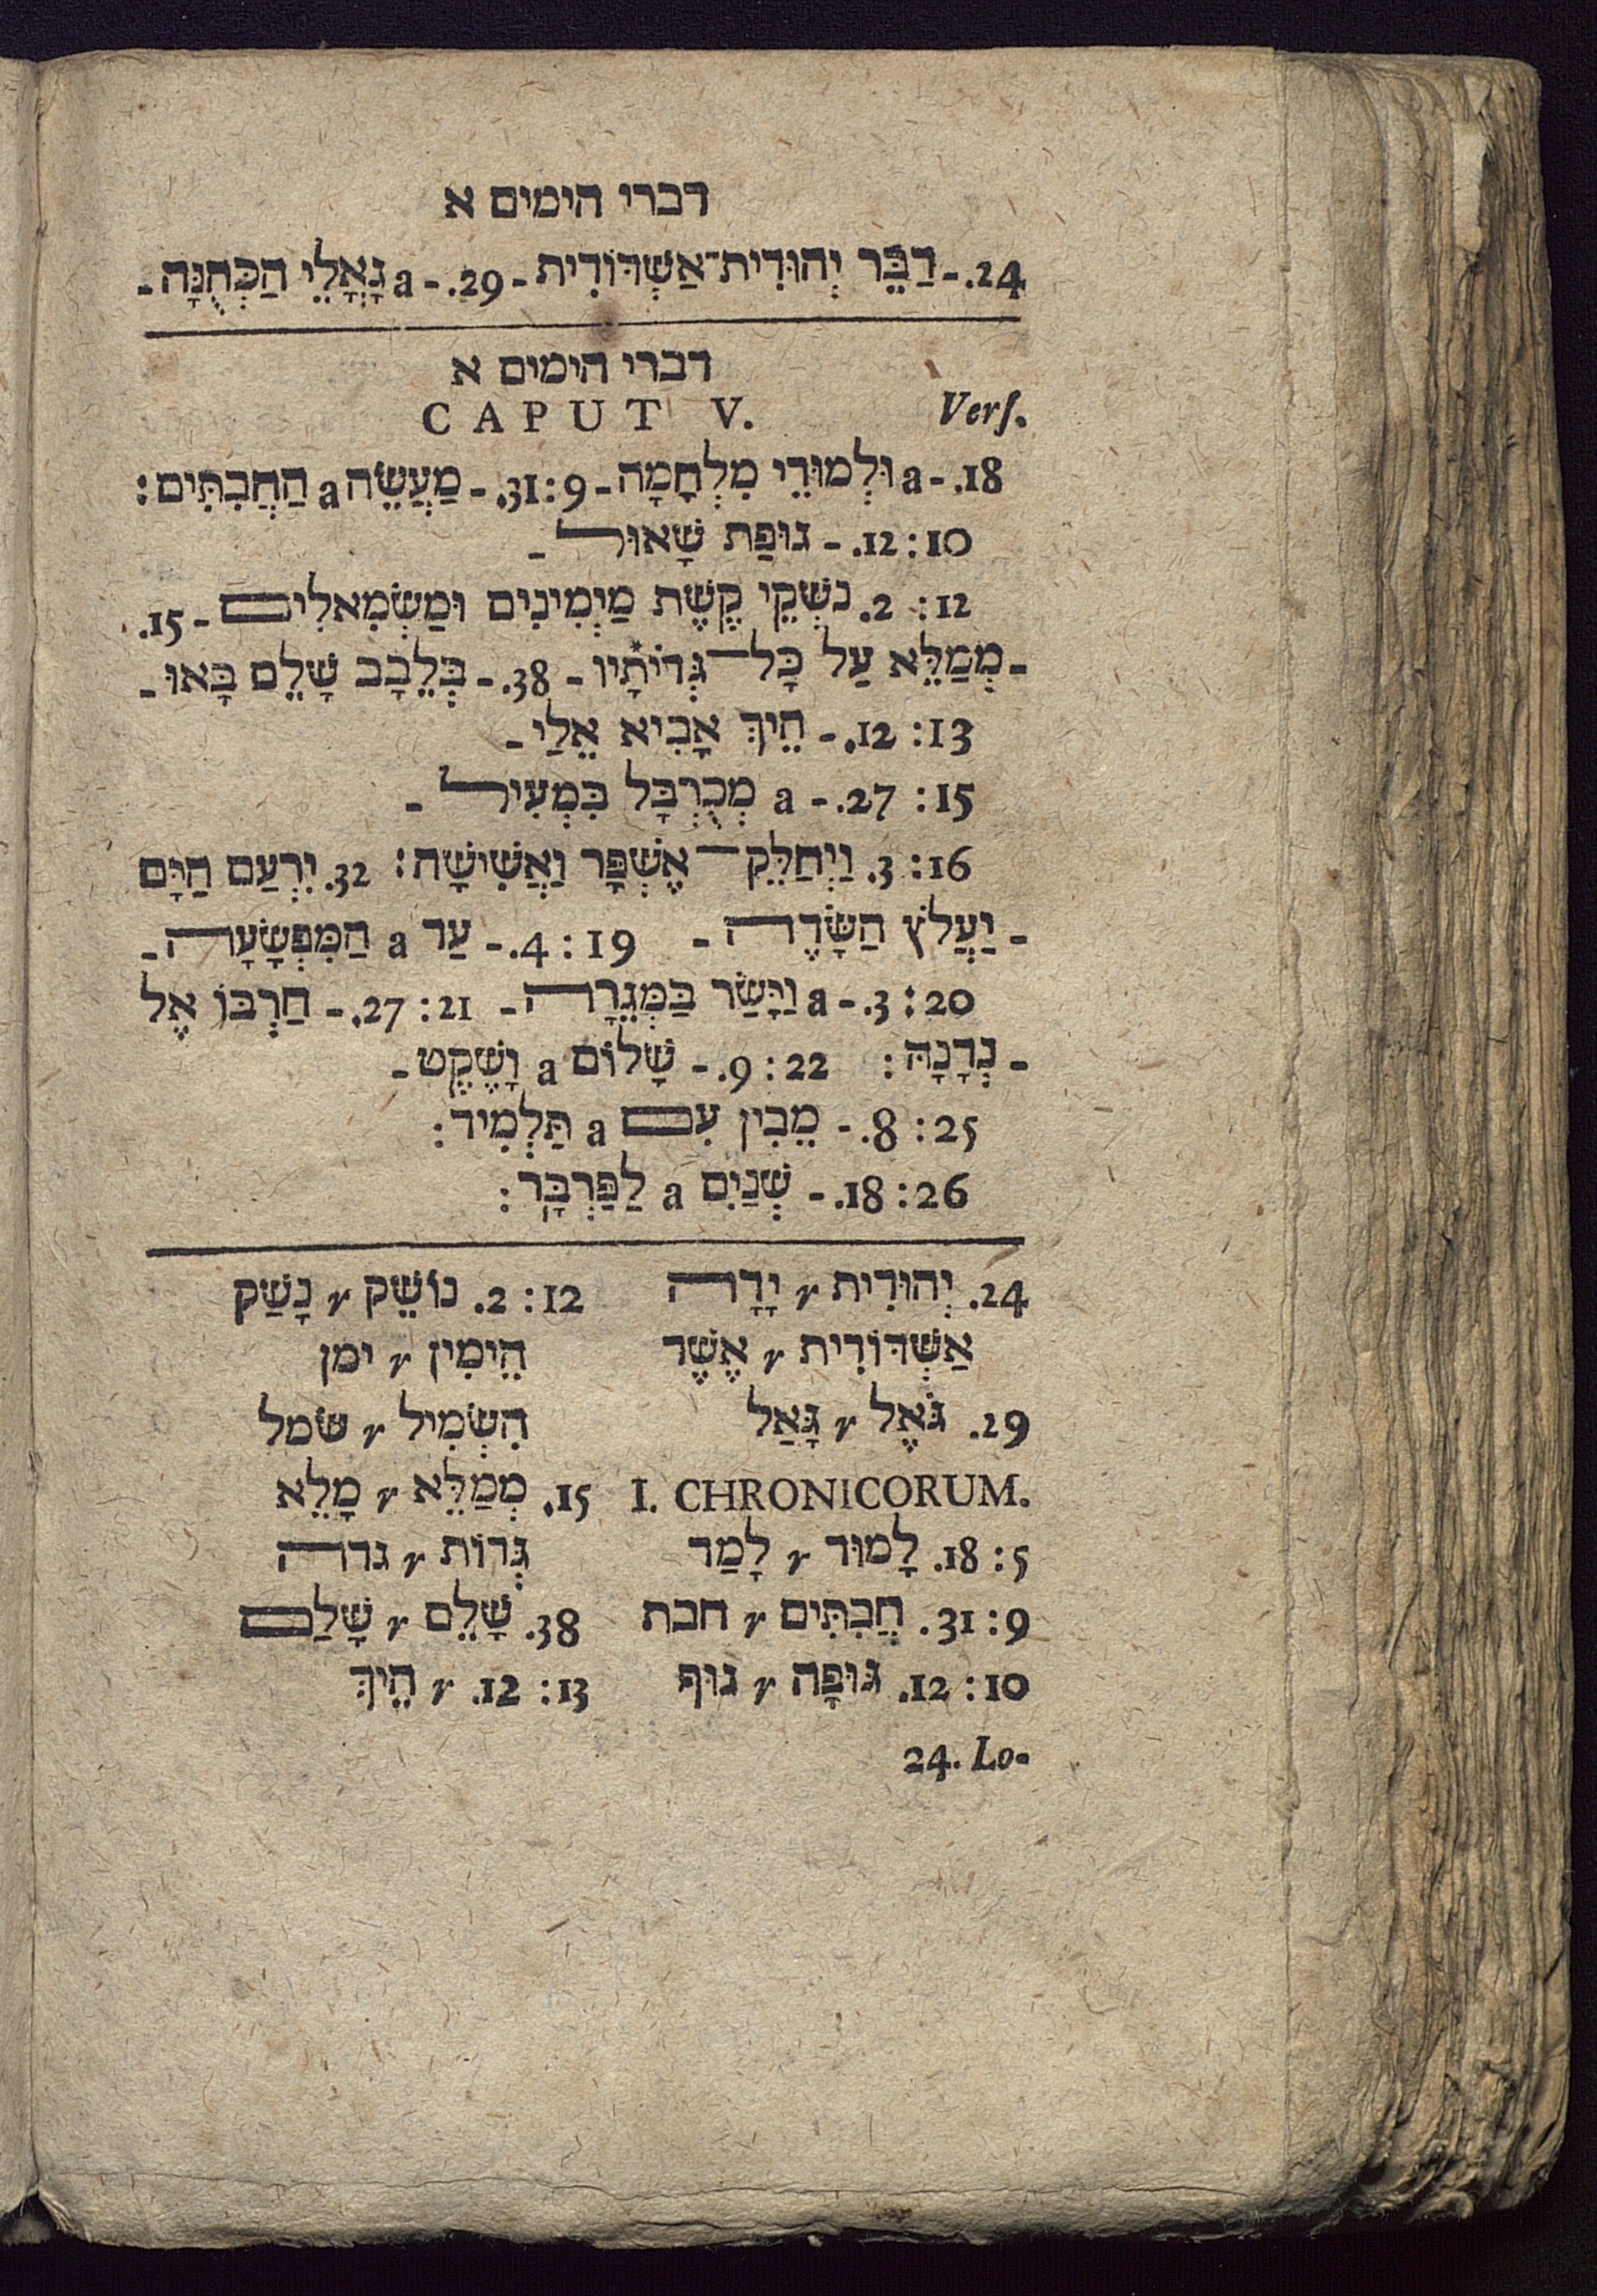 דברי הימים א
24. - דַבֵּר יְהוּדִית־אַשְׁדּוֹדִית - 29. - a גָּאֳלֵי הַכְּהֻנָּה -
דברי הימים א
CAPUT V. Vers.
18. - a וּלְמוּדֵי מִלְחָמָה - 9 : 31. - מַעֲשֵׂה a הַחֲבִתִּים :
10 : 12. - גוּפַת שָׁאוּל -
12 : 2. נֹשְׁקֵי קֶשֶׁת מַיְמִינִים וּמַשְׂמִאלִים - 15.
- מְמַלֵּא עַל כָּל־גְּדוֹתָיו - 38. - בְּלֵבָב שָׁלֵם בָּאוּ -
13 : 12. - הֵיךְ אָבִיא אֵלַי -
15 : 27. - a מְכֻרְבָּל בִּמְעִיל -
16 : 3. וַיְחַלֵּק־אֶשְׁפָּר וַאֲשִׁישָׁה : 32. יִרְעַם הַיָּם
- יַעֲלֹץ הַשָּׂדֶה - 19 : 4. - עַד a הַמִּפְשָׂעָה -
20 : 3. - a וַיָּשַׂר בַּמְּגֵרָה - 21 : 27. - חַרְבּוֹ אֶל
- נְדָנָהּ : 22 : 9. - שָׁלוֹם a וָשֶׁקֶט -
25 : 8. - מֵבִין עִם a תַּלְמִיד :
26 : 18. - שְׁנַיִם a לַפַּרְבָּר :
24. יְהוּדִית r יָדָה 12 : 2. נוֹשֵׁק r נָשַׁק
אַשְׁדּוֹדִית r אֶשֶׁד הֵימִין r ימן
29. גֹּאֶל r גָּאַל הִשְׂמִיל r שׂמל
I. CHRONICORUM. 15. מְמַלֵּא r מָלֵא
5 : 18. לָמוּד r לָמַד גְּדוֹת r גדה
9 : 31. חֲבִתִּים r חבת 38. שָׁלֵם r שָׁלַם
10 : 12. גּוּפָה r גוּף 13 : 12. r הֵיךְ
24. Lo-